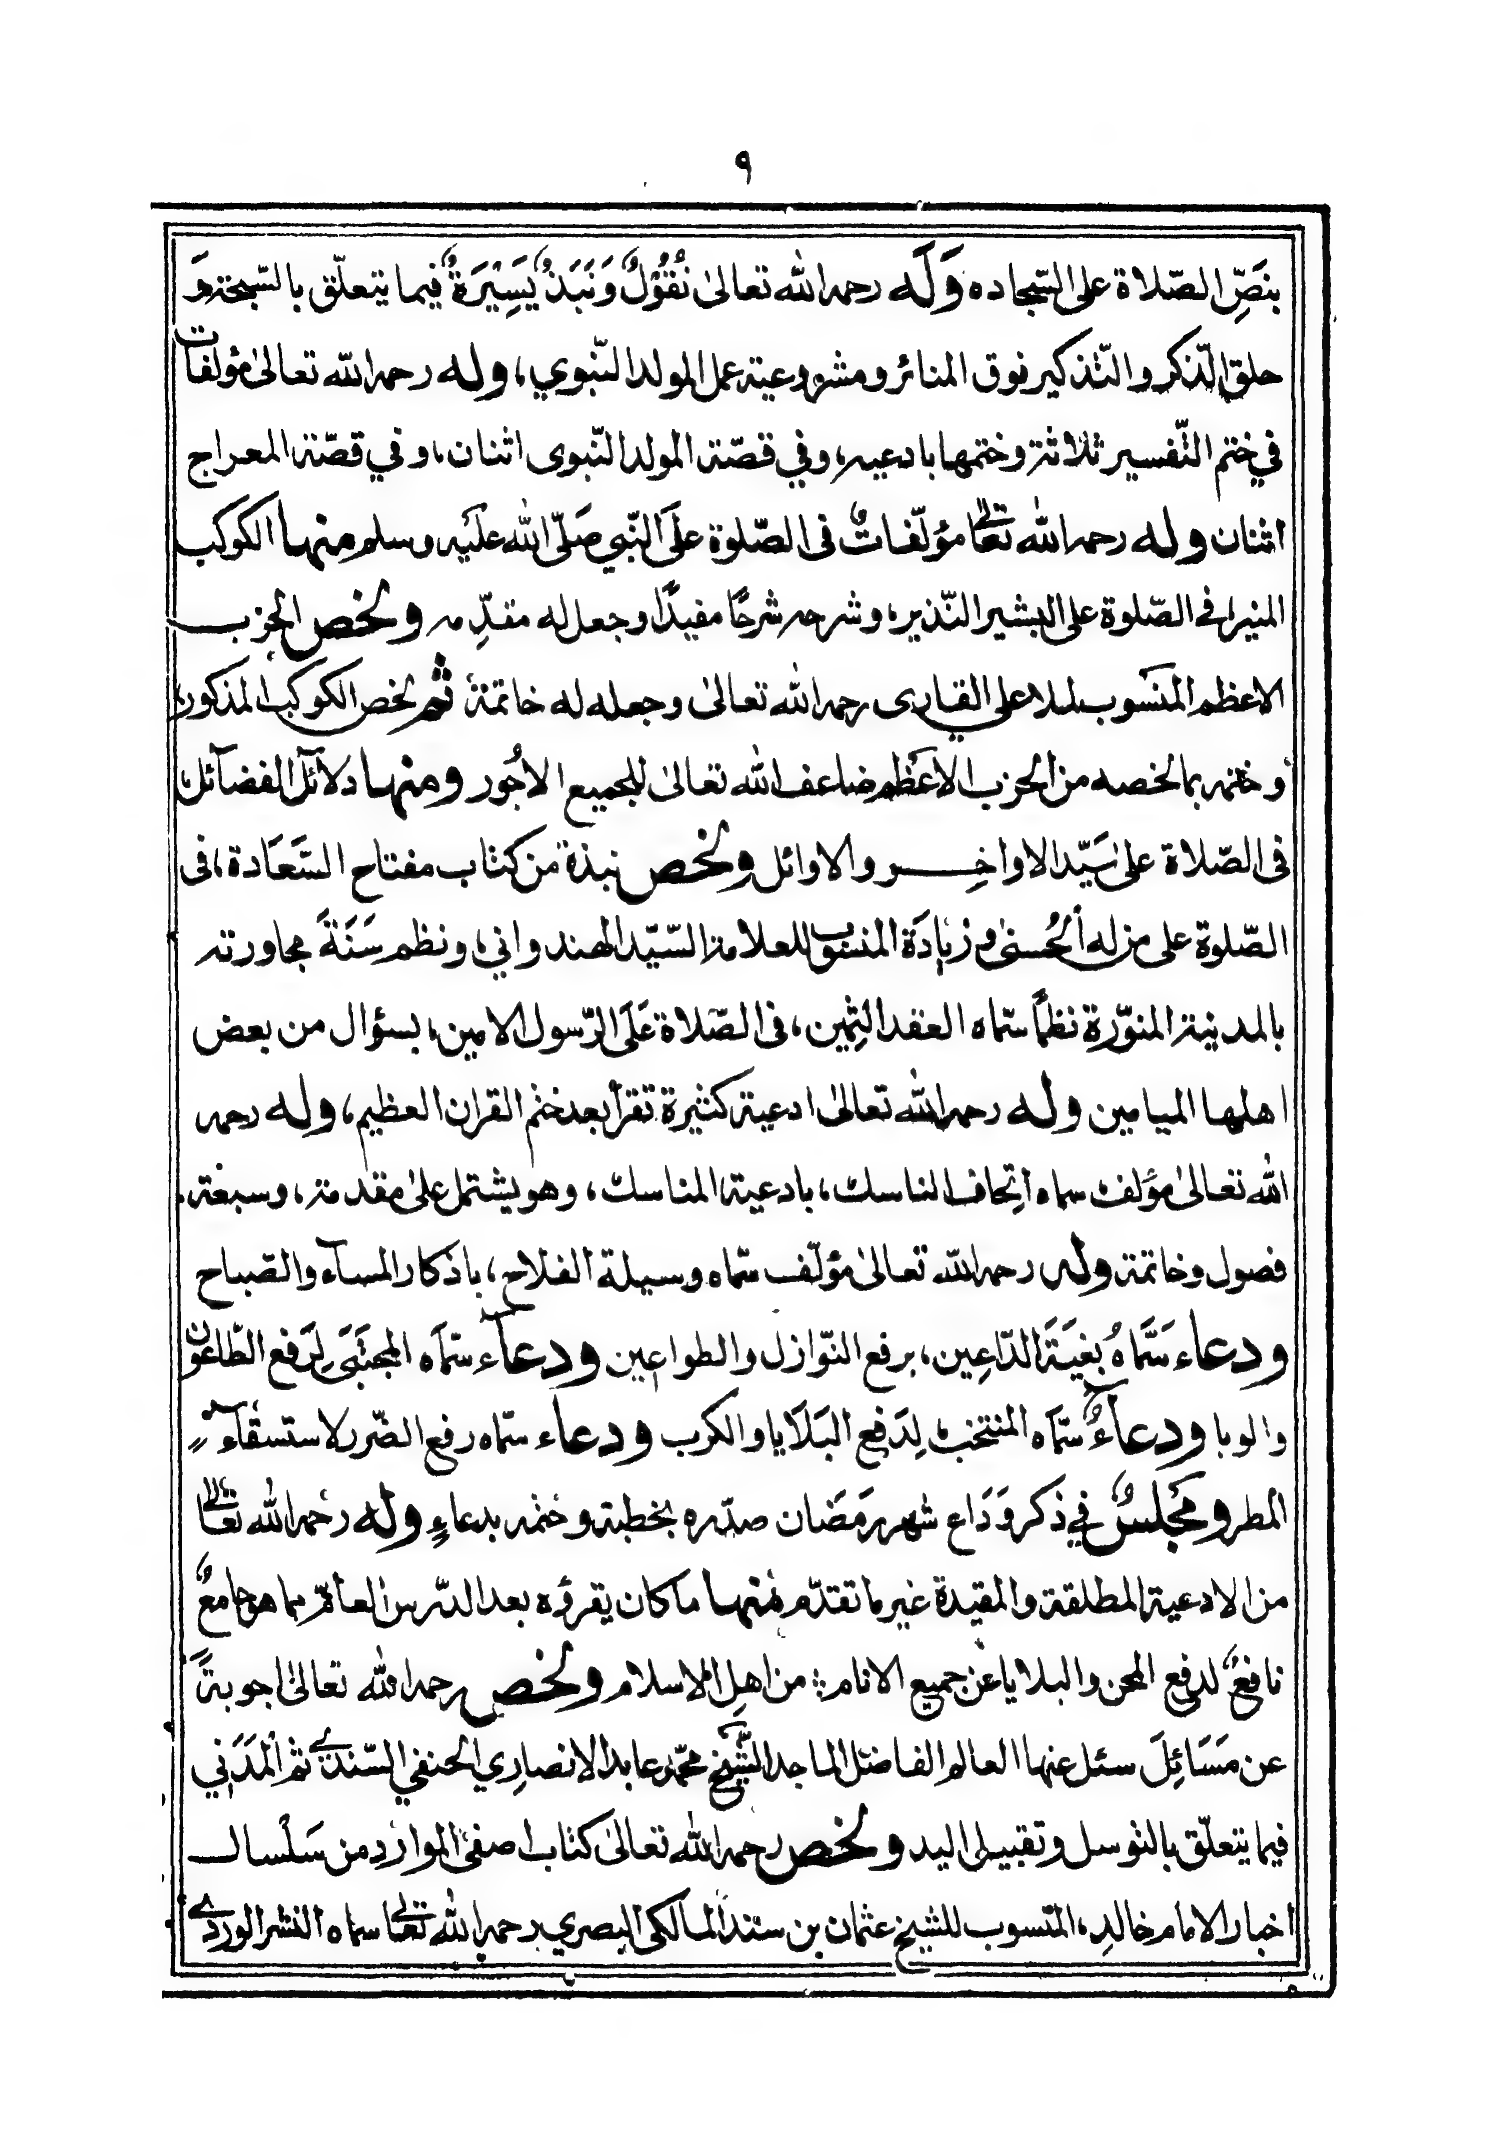 ٩
بنَصِّ الصّلاة على السّجاده وَلَه رحمه الله تعالىٰ نُقُوْلٌ وَنَبَذٌ يَسِيْرَةٌ فيما يتعلّق بالسّبحة وَ
حلق الذّكر والتّذكير فوق المنائر ومشروعية عمل المولد النّبوي، وله رحمه الله تعالىٰ مؤلفات
في ختم التّفسير ثلاثة وختمها بادعيه، وفي قصّة المولد النّبوى اثنان، وفي قصّة المعراج
اثنان وله رحمه الله تعالى مؤلّفاتٌ فى الصّلوة علَى النّبي صَلّى الله علَيه وسلم منها الكوكب
المنير، فى الصّلوة على البشير النّذير، وشرحه شرحًا مفيدًا وجعل له مقدّمه ولخص الحزب
الاعظم المنسوب لملا على القارى رحمه الله تعالىٰ وجعله له خاتمة ثم لخص الكوكب المذكور،
وختمه بما لخصه من الحزب الاعظم ضاعف الله تعالىٰ للجميع الاجُور ومنها دلائل الفضآئل،
فى الصّلاة علىٰ سَيّد الاواخِر والاوائل ولخص نبذة من كتاب مفتاح السَّعَادة، فى
الصّلوة على من له ألحُسنىٰ وزيادَة المنسوب للعلامة السّيّد الهندواني، ونظم سَنَةً مجاورته
بالمدينة المنوّرة نظمًا سمّاه العقد الثِمين، فى الصّلاة عَلَى الرّسول الامين، بسؤال من بعض
اهلها الميامين وله رحمه الله تعالىٰ ادعية كثيرة تقرأ بعد ختم القران العظيم، وله رحمه
الله تعالىٰ مؤلف سماه اتحاف الناسك، بادعية المناسك، وهو يشتمل علىٰ مقدمة، وسبعة،
فصول وخاتمة وله رحمه الله تعالىٰ مؤلّف سمّاه وسيلة الفلاح، باذكار المسآء والصّباح
ودعاء سَمَّاهُ بغيَةَ الدّاعِين، برفع النّوازل والطواعين ودعآء سمّاه المجتَبَى لِرَفع الطّاعون
والوبا ودعآءٌ سمّاه المنتخب لِدَفع البَلَايا والكرب ودعاء سمّاه رفع الضّرر لاستسقآء
المطر ومجلسٌ في ذكر وَدَاع شهر رَمَضان صدّره بخطبة وختمه بدعاءٍ وله رحمه الله تعالى
من الادعية المطلقة والمقيدة غير ما تقدّم منها ما كان يقرؤه بعد الدّرس العآمّ مما هو جامعٌ
نافعٌ لدفع المحن والبلايا عن جميع الانام من اهل الاسلام ولخص رحمه الله تعالىٰ اجوبةً
عن مَسَائِلَ سئل عنها العالم الفاضل الماجد الشّيخ محمّد عابد الانصارِي الحنفي السّندي ثم المَدَني
فيما يتعلّق بالتوسل وتقبيل اليد ولخص رحمه الله تعالىٰ كتاب اصفى الموارد من سَلْسال
اخبار الامام خالد، المنسوب للشيخ عثمان بن سند المالكى البصري رحمه الله تعالى سماه النشر الوردي